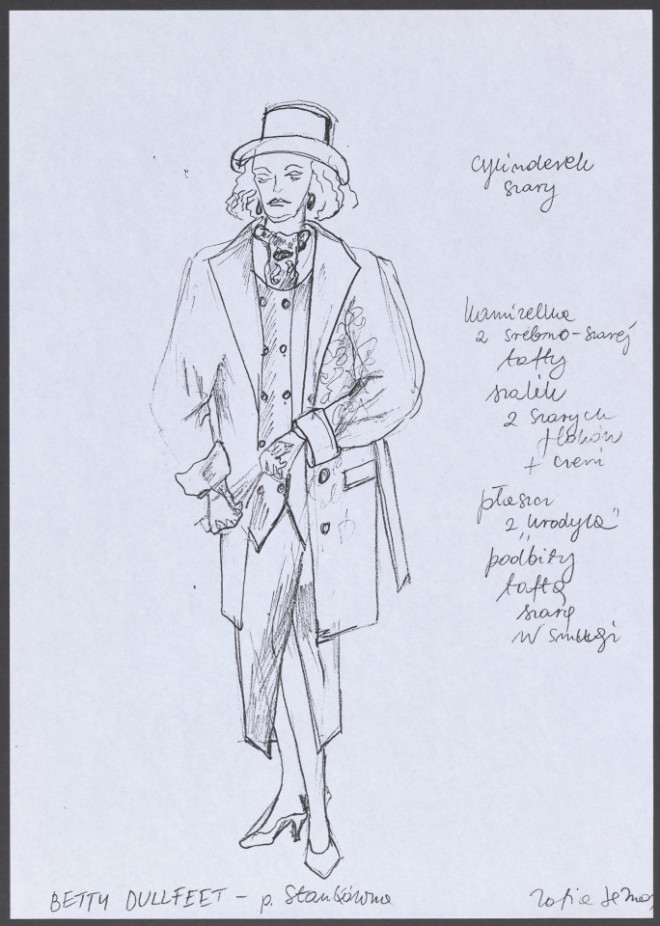 cylinderek
szary
kamizelka
z srebrno-szarej
tafty
szalik
z szarych
+ czerń
płaszcz
z "krodyla"
podbity
taftą
szarą
w smugi
BETTY DULLFEET – p. Stankówna
Zofia de